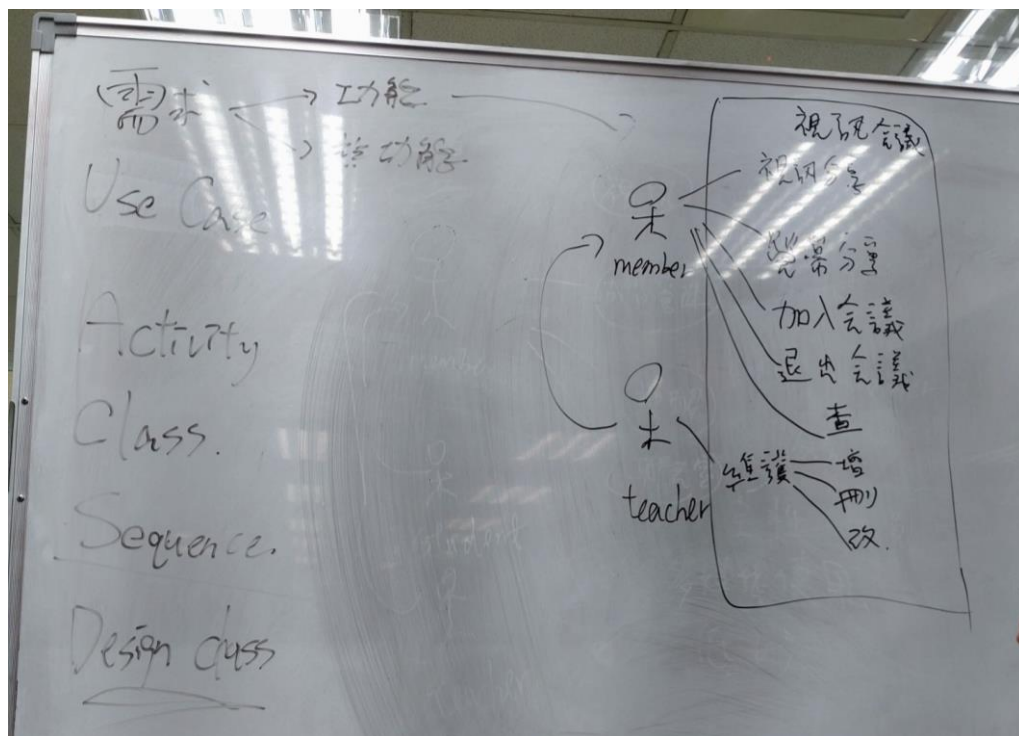 需求 → 功能
→ 非功能
Use Case
Activity
Class.
Sequence.
Design class
member
teacher
視訊会議
視訊分享
螢幕分享
加入会議
退出会議
查
維護
增
刪
改.